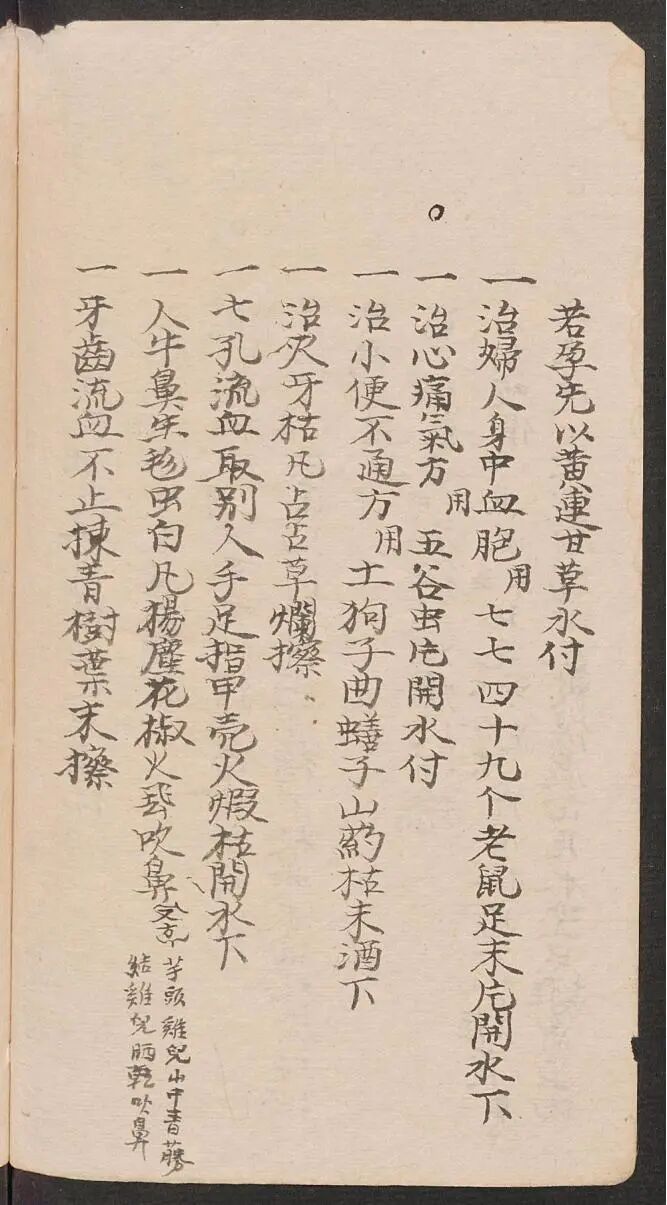 若孕先以黄連甘草水付
一治婦人身中血胞用七七四十九个老鼠足末庀開水下
一治心痛氣方用五谷虫庀開水付
一治小便不通方用土狗子曲蟮子山药枯末酒下
一治火牙枯凡占占草爛擦
一七孔流血取别人手足指甲壳火煅枯開水下
一人牛鼻生虫白凡揚塵花椒火吹鼻
芋頭雞兒山中青藤
結雞兒晒乾吹鼻
一牙齒流血不止揀青樹葉末擦